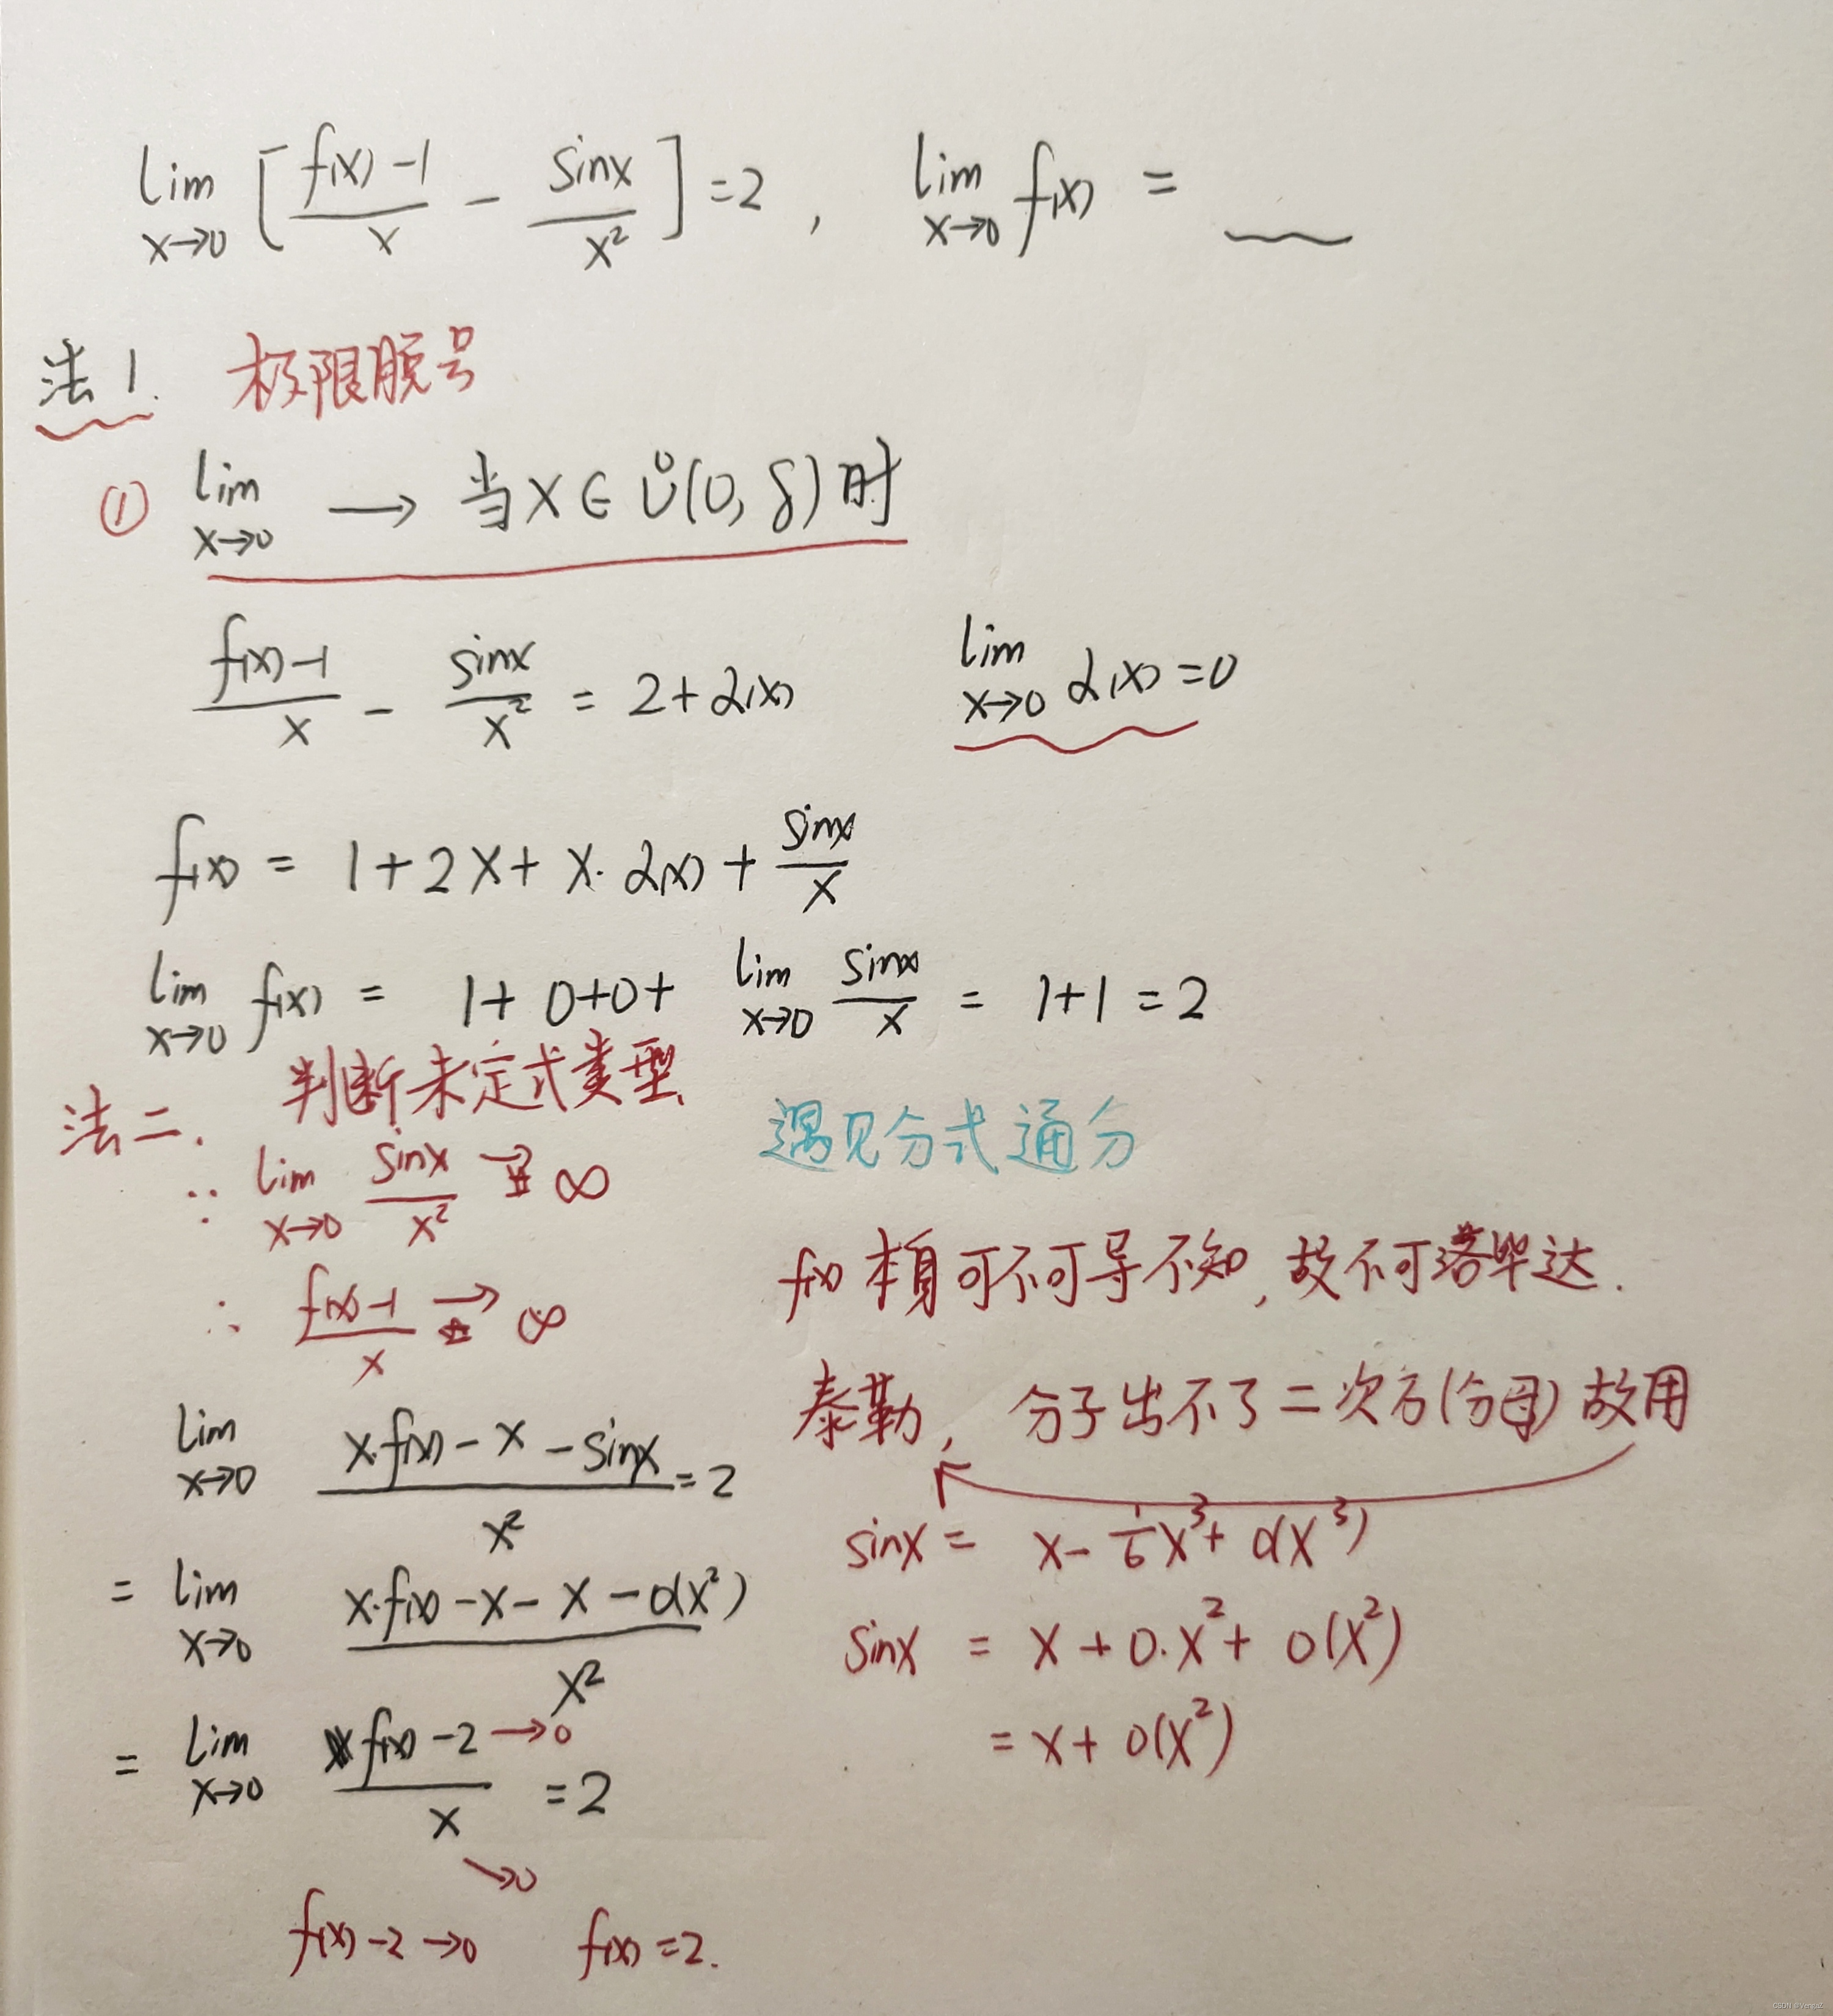 lim x→0 [ (f(x)-1)/x - sinx/x² ] = 2 , lim x→0 f(x) = ___
法1. 极限脱号
① lim x→0 → 当x∈Ů(0,δ)时
(f(x)-1)/x - sinx/x² = 2+α(x) lim x→0 α(x)=0
f(x) = 1+2x+x·α(x)+ sinx/x
lim x→0 f(x) = 1+0+0+ lim x→0 sinx/x = 1+1=2
法二. 判断未定式类型
遇见分式通分
∵ lim x→0 sinx/x² → ∞
∴ (f(x)-1)/x → ∞
f(x)本身可不可导不知,故不可洛毕达.
泰勒, 分子出不了二次方(分母)故用
lim x→0 (x·f(x)-x-sinx)/x² =2
sinx = x- 1/6 x³+o(x³)
= lim x→0 (x·f(x)-x-x-o(x²))/x²
sinx = x+0·x²+o(x²)
= x+o(x²)
= lim x→0 (f(x)-2)/x =2
→0
→0
f(x)-2→0 f(x)=2.